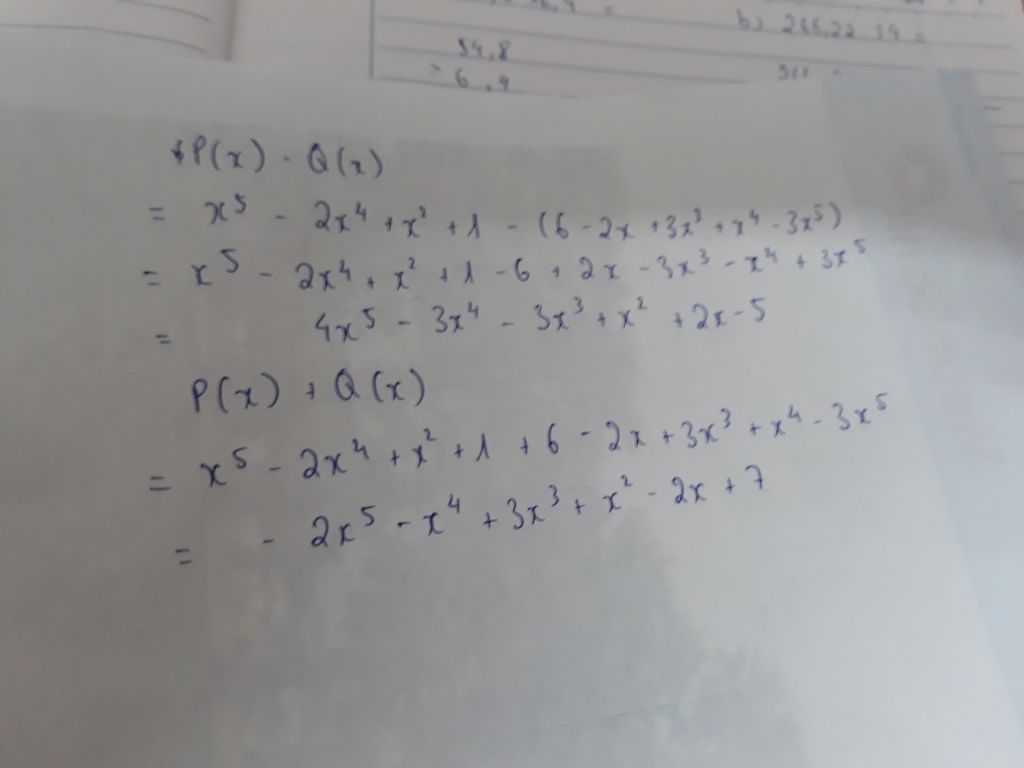 b) 266,22 : 34 =
54,8
× 6,4
*P(x) - Q(x)
= x⁵ - 2x⁴ + x² + 1 - (6 - 2x + 3x³ + x⁴ - 3x⁵)
= x⁵ - 2x⁴ + x² + 1 - 6 + 2x - 3x³ - x⁴ + 3x⁵
= 4x⁵ - 3x⁴ - 3x³ + x² + 2x - 5
P(x) + Q(x)
= x⁵ - 2x⁴ + x² + 1 + 6 - 2x + 3x³ + x⁴ - 3x⁵
= - 2x⁵ - x⁴ + 3x³ + x² - 2x + 7